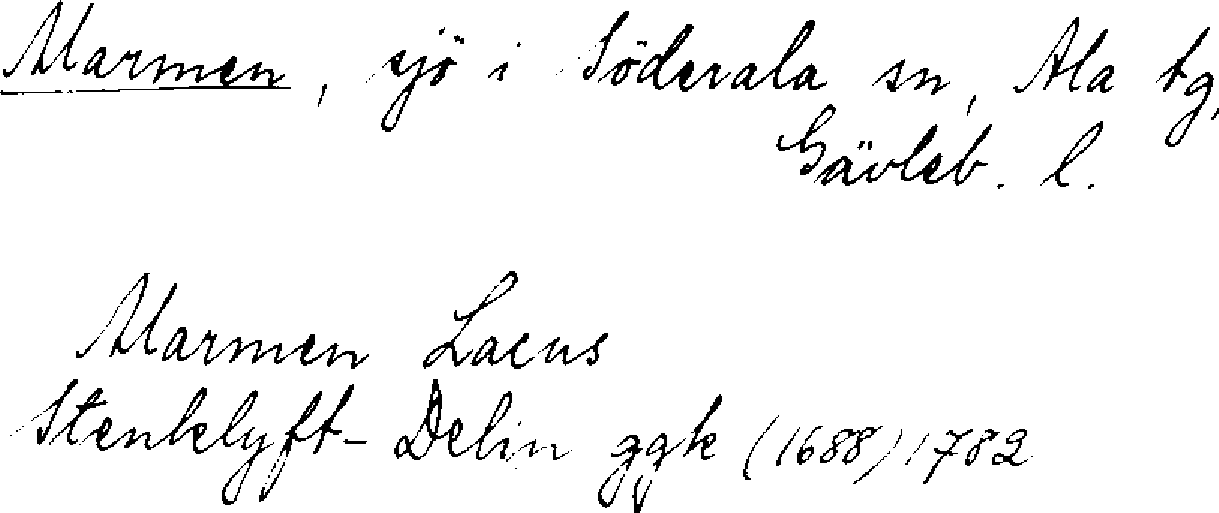 Marmen, sjö i Söderala sn, Ala tg,
Gävleb. l.
Marmen Lacus
Stenklyft-Delin ggk (1688) 1782